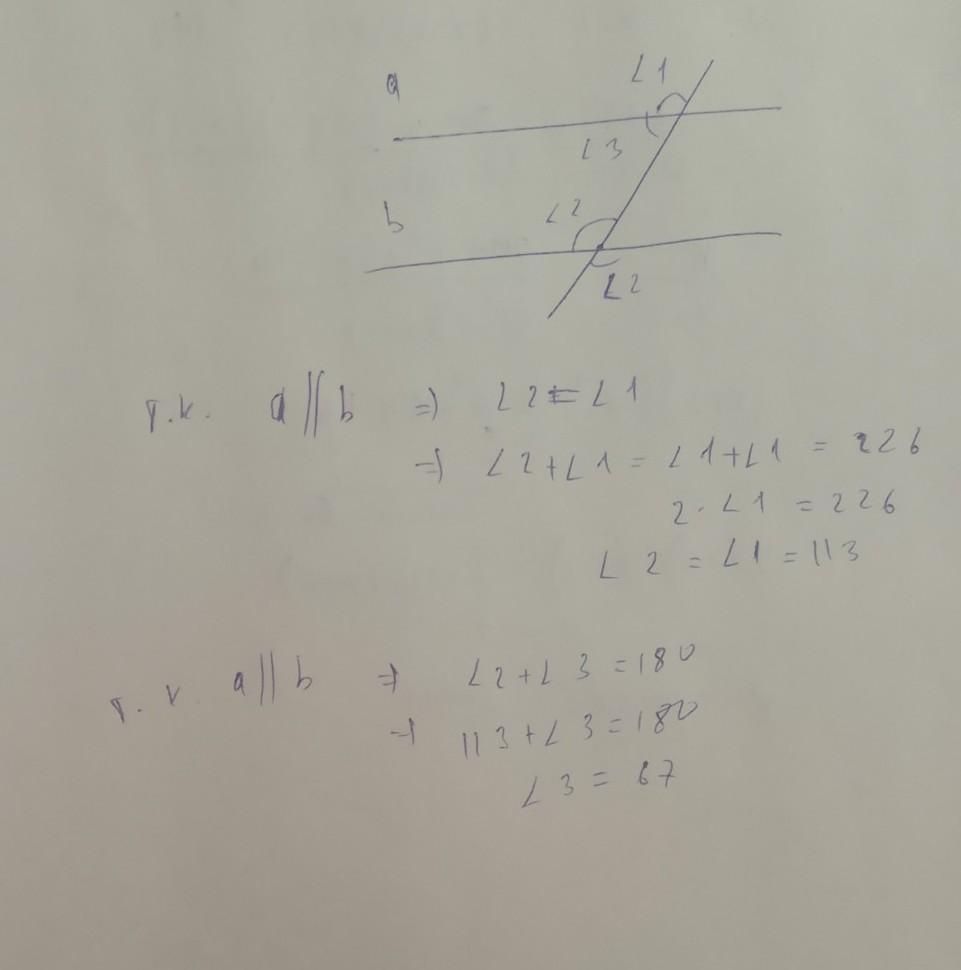 a
∠1
∠3
b
∠2
∠2
т.к. a || b ⇒ ∠2 = ∠1
⇒ ∠2 + ∠1 = ∠1 + ∠1 = 226
2 · ∠1 = 226
∠2 = ∠1 = 113
т.к. a || b ⇒ ∠2 + ∠3 = 180
⇒ 113 + ∠3 = 180
∠3 = 67